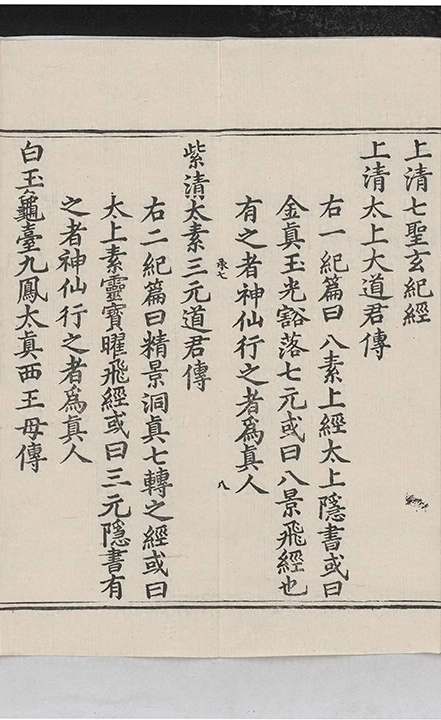 上清七聖玄紀經
上清太上大道君傳
右一紀篇曰八素上經太上隱書或曰
金真玉光豁落七元或曰八景飛經也
有之者神仙行之者爲真人
承七
八
紫清太素三元道君傳
右二紀篇曰精景洞真七轉之經或曰
太上素靈寶曜飛經或曰三元隱書有
之者神仙行之者爲真人
白玉龜臺九鳳太真西王母傳